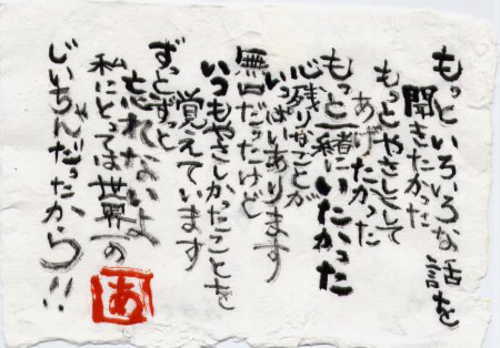 もっといろいろな話を
聞きたかった
もっとやさしくして
あげたかった
もっと一緒にいたかった
心残りなことが
いっぱいあります
無口だったけど
いつもやさしかったことを
覚えています
ずっとずっと
忘れないよ
私にとっては世界一の
じいちゃんだったから!!
あ